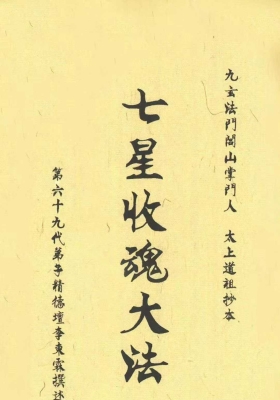 九玄法門閭山掌門人 太上道祖抄本
七星收魂大法
第六十九代弟子精德壇李東霖撰述